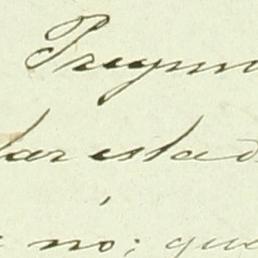 Pregun
tar estad
no; que